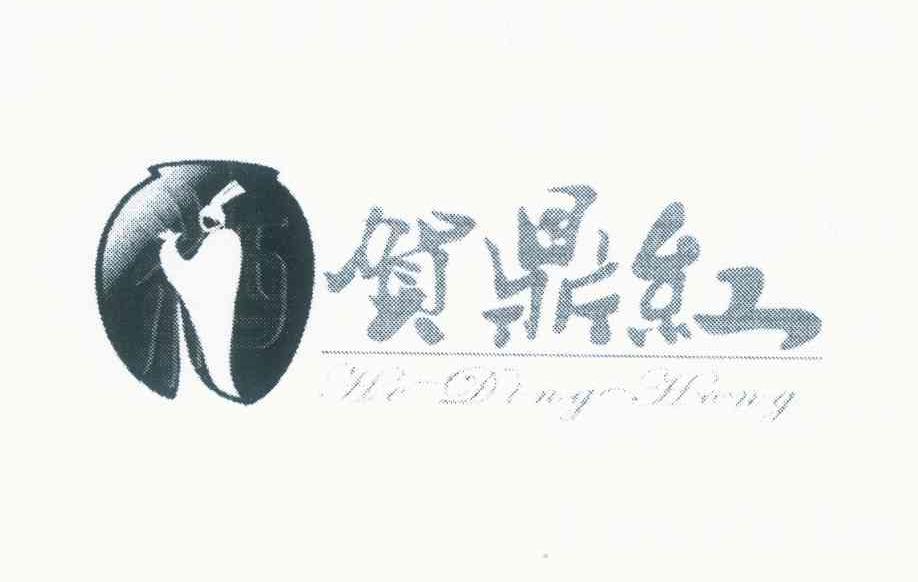 賀鼎紅
He Ding Hong